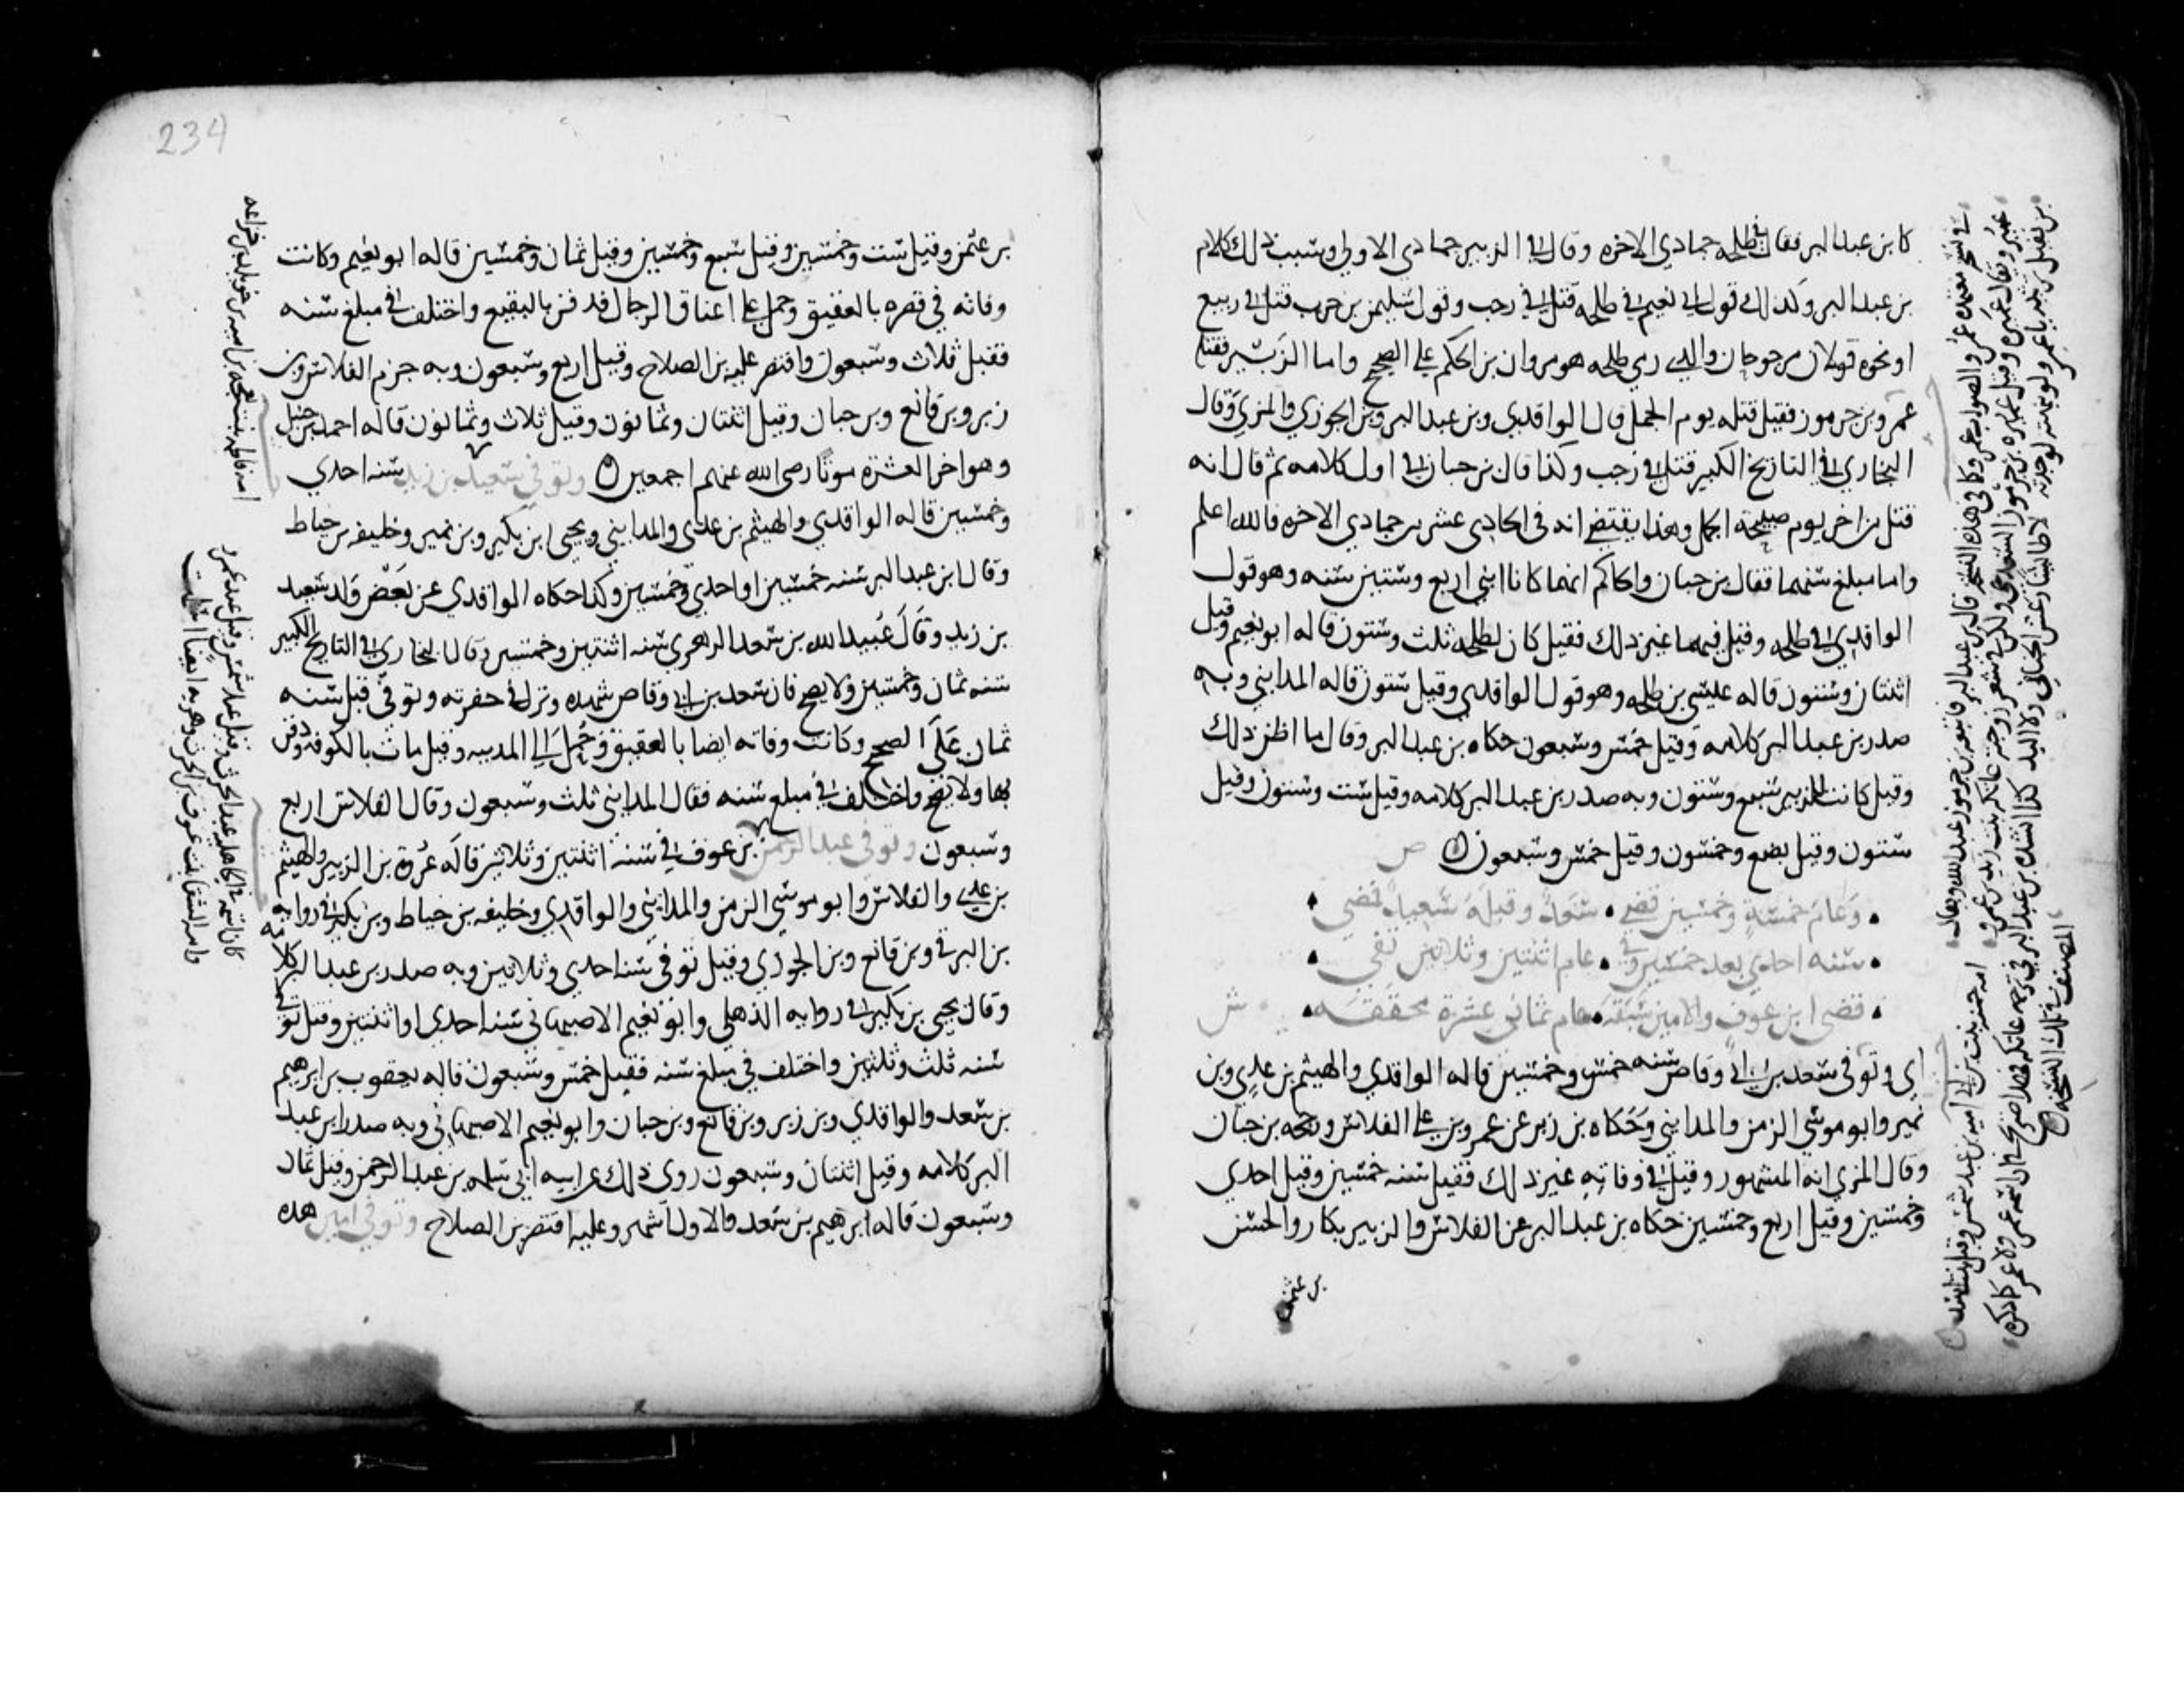 كابن عبد البر فقال في طلحه جمادي الاخره وقال في الزبير جمادي الاولي وسبب ذلك كلام
بن عبد البر وكذلك قول ابي نعيم في طلحه قتل في رجب وقول سليمن بن حرب قتل في ربيع
او نحوه قولان مرجوحان والذي رمي طلحه هو مروان بن الحكم علي الصحيح واما الزبير فقتله
عمرو بن جرموز فقيل قتله يوم الجمل قال الواقدي وبن عبد البر وبن الجوزي والمزي وقال
البخاري في التاريخ الكبير قتل في رجب وكذا قال بن حبان في اول كلامه ثم قال انه
قتل من اخر يوم صبيحة الجمل وهذا يقتضي انه في الحادي عشر من جمادي الاخره فالله اعلم
واما مبلغ سنهما فقال بن حبان والحاكم انهما كانا ابني اربع وستين سنه وهو قول
الواقدي في طلحه وقيل فيهما غير ذلك فقيل كان لطلحه ثلث وستون قاله ابو نعيم وقيل
اثنتان وستون قاله عيسي بن طلحه وهو قول الواقدي وقيل ستون قاله المدايني وبه
صدر بن عبد البر كلامه وقيل خمس وسبعون حكاه بن عبد البر وقال ما اظن ذلك
وقيل كانت للزبير سبع وستون وبه صدر بن عبد البر كلامه وقيل ست وستون وقيل
ستون وقيل بضع وخمسون وقيل خمس وسبعون ص
وعام خمسة وخمسين قضي سعد وقبله سعيد فمضي
سنه احدي بعد خمسين وفي عام اثنتين وثلاثين تفي
قضي ابن عوف والامين سبقه عام ثماني عشرة محققه ش
اي وتوفي سعد بن ابي وقاص سنه خمس وخمسين قاله الواقدي والهيثم بن عدي وبن
نمير وابو موسي الزمن والمدايني وحكاه بن زبر عن عمرو بن علي الفلاس ورجحه بن حبان
وقال المزي انه المشهور وقيل في وفاته غير ذلك فقيل سنه خمسين وقيل احدي
وخمسين وقيل اربع وخمسين حكاه بن عبد البر عن الفلاس والزبير بكار والحسن
بن عثمن
234
بن عثمن وقيل ست وخمسين وقيل سبع وخمسين وقيل ثمان وخمسين قاله ابو نعيم وكانت
وفاته في قصره بالعقيق وحمل علي اعناق الرجال فدفن بالبقيع واختلف في مبلغ سنه
فقيل ثلاث وسبعون واقتصر عليه بن الصلاح وقيل اربع وسبعون وبه جزم الفلاس وبن
زبر وبن قانع وبن حبان وقيل اثنتان وثمانون وقيل ثلاث وثمانون قاله احمد بن حنبل
وهو اخر العشرة موتا رضي الله عنهم اجمعين وتوفي سعيد بن زيد سنه احدي
وخمسين قاله الواقدي والهيثم بن عدي والمدايني ويحيي ابن بكير وبن نمير وخليفه بن خياط
وقال ابن عبد البر سنه خمسين او احدي وخمسين وكذا حكاه الواقدي عن بعض ولد سعيد
بن زيد وقال عبيد الله بن سعد الزهري سنه اثنتين وخمسين وقال البخاري في التاريخ الكبير
سنه ثمان وخمسين ولا يصح فان سعد بن ابي وقاص شهده ونزل في حفرته وتوفي قبل سنه
ثمان علي الصحيح وكانت وفاته ايضا بالعقيق وحمل الي المدينه وقيل مات بالكوفه ودفن
بها ولا يصح واختلف في مبلغ سنه فقال المدايني ثلث وسبعون وقال الفلاس اربع
وسبعون وتوفي عبد الرحمن بن عوف في سنه اثنتين وثلاثين قاله عروة بن الزبير والهيثم
بن عدي والفلاس وابو موسي الزمن والمدايني والواقدي وخليفه بن خياط وبن بكير في روايه
بن البرقي وبن قانع وبن الجوزي وقيل توفي سنه احدي وثلاثين وبه صدر بن عبد البر كلامه
وقال يحيي بن بكير في روايه الذهلي وابو نعيم الاصبهاني سنه احدي او اثنتين وقيل توفي
سنه ثلث وثلثين واختلف في مبلغ سنه فقيل خمس وسبعون قاله يعقوب بن ابرهيم
بن سعد والواقدي وبن زبر وبن قانع وبن حبان وابو نعيم الاصبهاني وبه صدر ابن عبد
البر كلامه وقيل اثنتان وسبعون روي ذلك عن ابيه ابي سلمه بن عبد الرحمن وقيل ثمان
وسبعون قاله ابرهيم بن سعد والاول اشهر وعليه اقتصر بن الصلاح وتوفي امين هذه